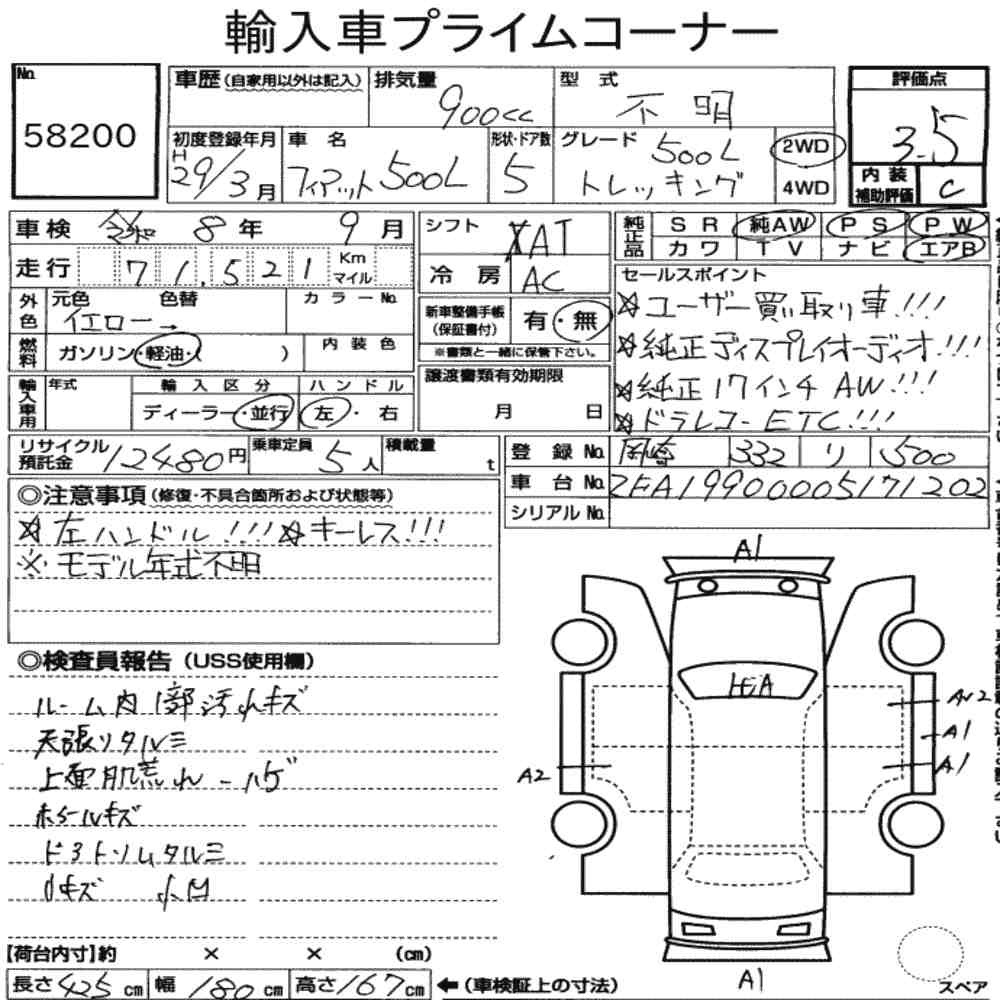 輸入車プライムコーナー
No. 58200
車歴 (自家用以外は記入) 排気量 900cc 型式 不明
評価点 3.5
初度登録年月 H 29/3月 車名 フィアット500L 形状・ドア数 5 グレード 500L トレッキング 2WD 4WD
内装補助評価 C
車検 令和 8年 9月
シフト AT
純正品 SR 純AW PS PW
カワ TV ナビ エアB
走行 71,521 Km マイル
冷房 AC
セールスポイント
☆ユーザー買い取り車!!!
☆純正ディスプレイオーディオ!!!
☆純正17インチAW!!!
☆ドラレコーETC!!!
外色 元色 イエロー→ 色替 カラーNo.
新車整備手帳 (保証書付) 有・無
※書類と一緒に保管下さい。
燃料 ガソリン・軽油・( ) 内装色
譲渡書類有効期限
月 日
輸入車用 年式 輸入区分 ハンドル
ディーラー・並行 左・右
リサイクル預託金 12480円 乗車定員 5人 積載量 t
登録No. 岡崎 332 リ 500
車台No. ZFA19900005171202
シリアルNo.
◎注意事項 (修復・不具合箇所および状態等)
☆左ハンドル!!!☆キーレス!!!
※モデル年式不明
◎検査員報告 (USS使用欄)
ルーム内1部汚れキズ
天張りタルミ
上面肌荒れーハゲ
ホイールキズ
ドアトリムタルミ
小キズ 小凹
A1
A2
A1
A1
A1
【荷台内寸】約 × × (cm)
長さ425cm 幅180cm 高さ167cm ←(車検証上の寸法)
スペア